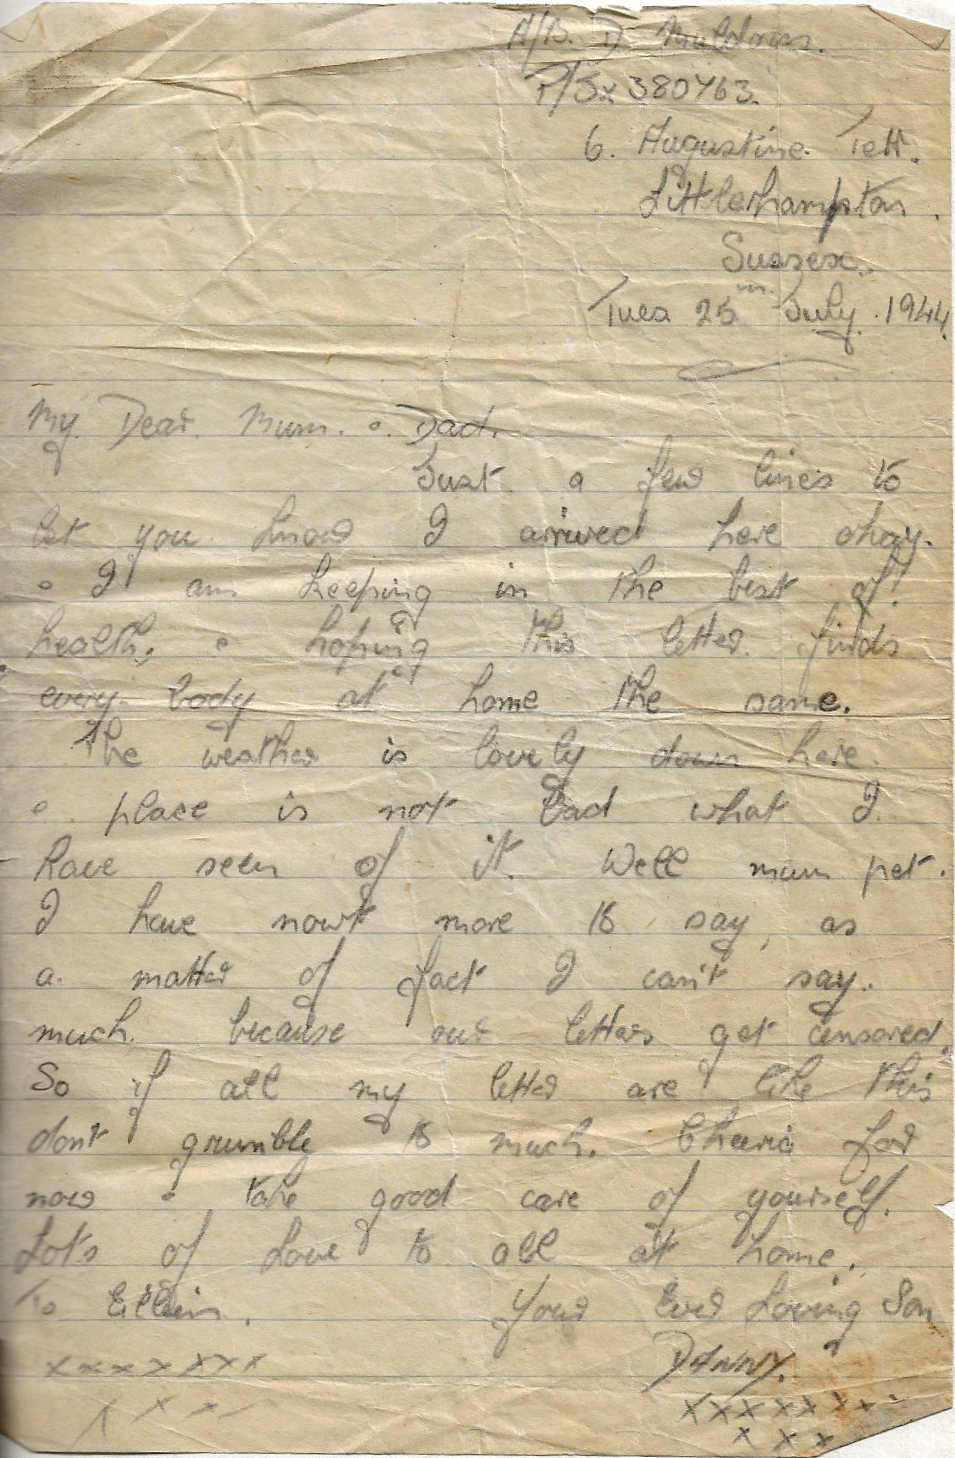 A/B. D. Muldoon.
P/Sx 380763.
6. Augustine Terr.
Littlerhampton.
Sussex.
Tues 25 July. 1944.
My. Dear. Mum. & Dad.
Just a few lines to
let you know I arrived here okay.
& I am keeping in the best of
health, & hoping this letter finds
every body at home the same.
The weather is lovely down here.
& place is not bad what I
have seen of it. Well mum pet.
I have nowt more to say, as
a. matter of fact I can't say.
much. because our letters get censored.
So if all my letter are like this
don't grumble to much. Cheerio for
now & take good care of yourself.
Lots of Love to all at home.
To Eileen. Your Ever Loving Son
DANNY.
x x x x x x x x x x x x x x x
x x x x x x